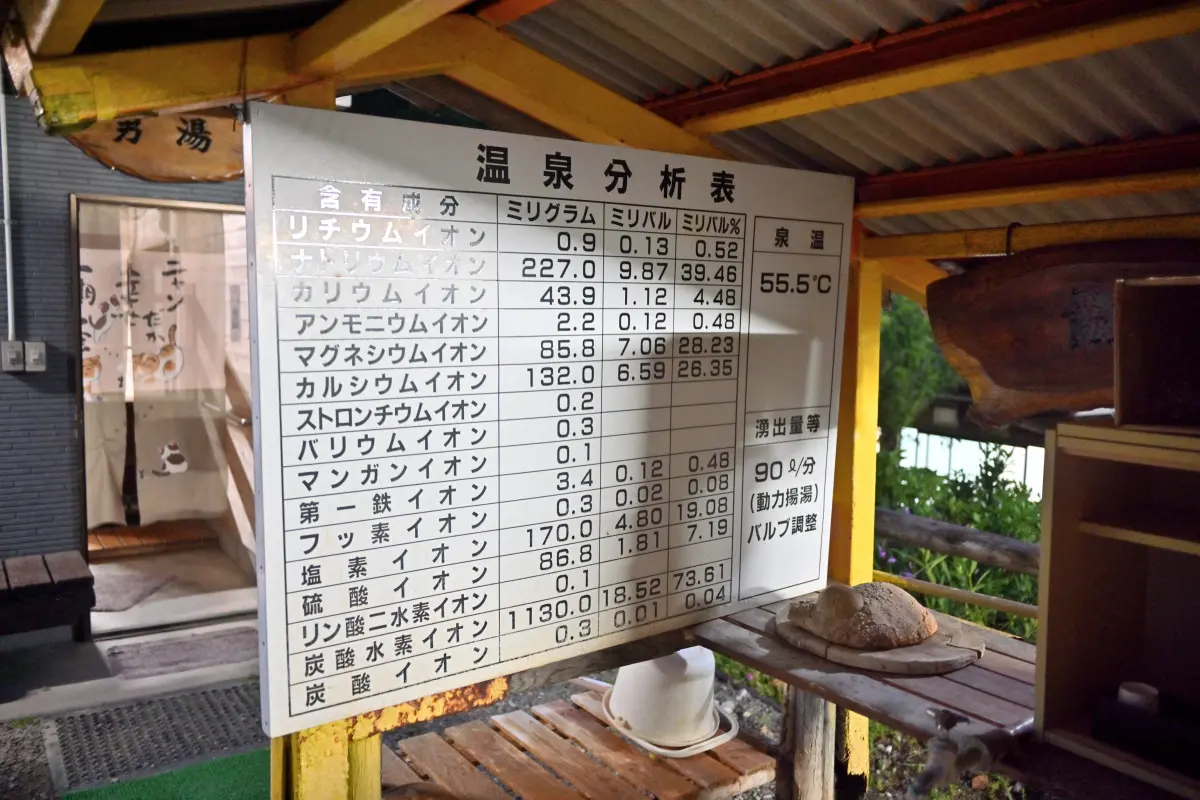 男湯
温泉分析表
含有成分 ミリグラム ミリバル ミリバル%
リチウムイオン 0.9 0.13 0.52
ナトリウムイオン 227.0 9.87 39.46
カリウムイオン 43.9 1.12 4.48
アンモニウムイオン 2.2 0.12 0.48
マグネシウムイオン 85.8 7.06 28.23
カルシウムイオン 132.0 6.59 26.35
ストロンチウムイオン 0.2
バリウムイオン 0.3
マンガンイオン 0.1
第一鉄イオン 3.4 0.12 0.48
フッ素イオン 0.3 0.02 0.08
塩素イオン 170.0 4.80 19.08
硫酸イオン 86.8 1.81 7.19
リン酸二水素イオン 0.1
炭酸水素イオン 1130.0 18.52 73.61
炭酸イオン 0.3 0.01 0.04
泉温
55.5℃
湧出量等
90ℓ/分
(動力揚湯)
バルブ調整
ニャン
だか